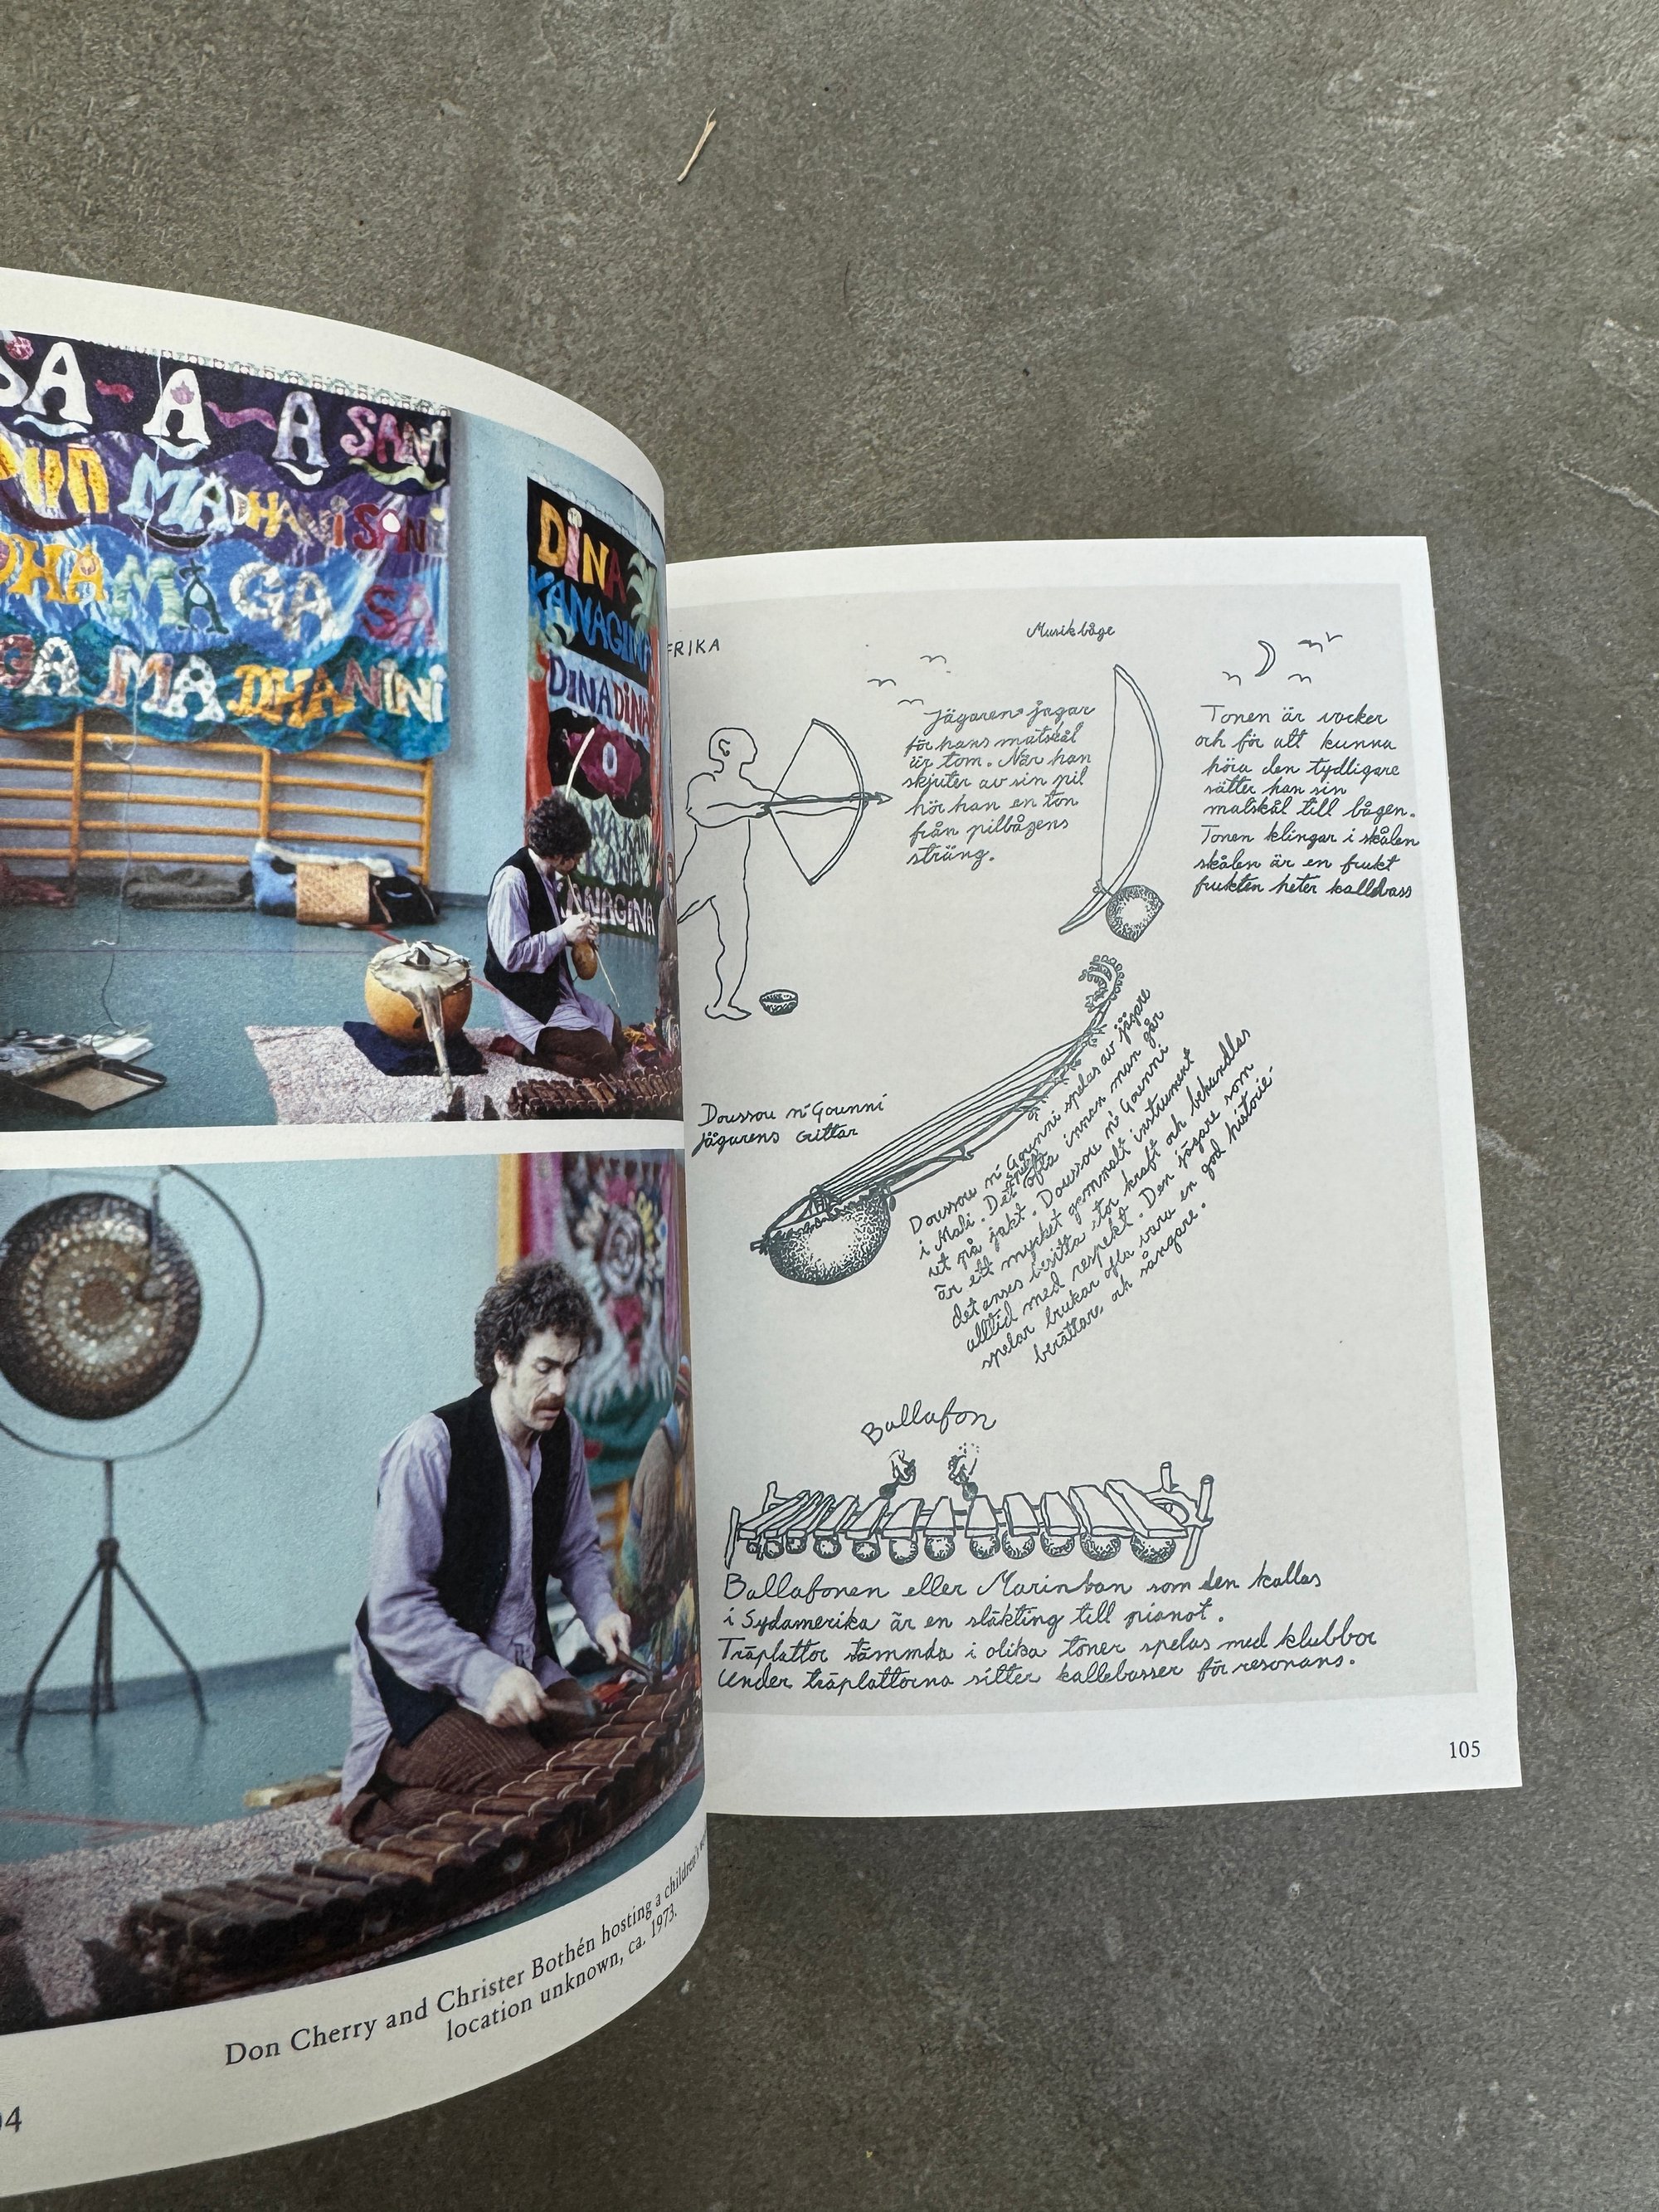 SA-A-A SANI
MADHANiSANi
DHA MA GA SA
GA MA DHANINi
DiNA
KANAGINA
DINADINA
O
NAKAN
KANA
NAGINA
Don Cherry and Christer Bothén hosting a children's
location unknown, ca. 1973.
04
FRIKA
Musikbåge
Jägaren jagar
för hans matskål
är tom. När han
skjuter av sin pil
hör han en ton
från pilbågens
sträng.
Tonen är vacker
och för att kunna
höra den tydligare
sätter han sin
matskål till bågen.
Tonen klingar i skålen
skålen är en frukt
frukten heter kallebass
Doussou n'Gounni
jägarens gittar
Doussou n'Gounni spelas av jägare
i Mali. Det ofta innan man går
ut på jakt. Doussou n'Gounni
är ett mycket gammalt instrument
det anses besitta stor kraft och behandlas
alltid med respekt. Den jägare som
spelar brukar ofta vara en god historie-
berättare och sångare.
Ballafon
Ballafonen eller Marinban som den kallas
i Sydamerika är en släkting till pianot.
Träplattor stämmda i olika toner spelas med klubbor
Under träplattorna sitter kallebasser för resonans.
105